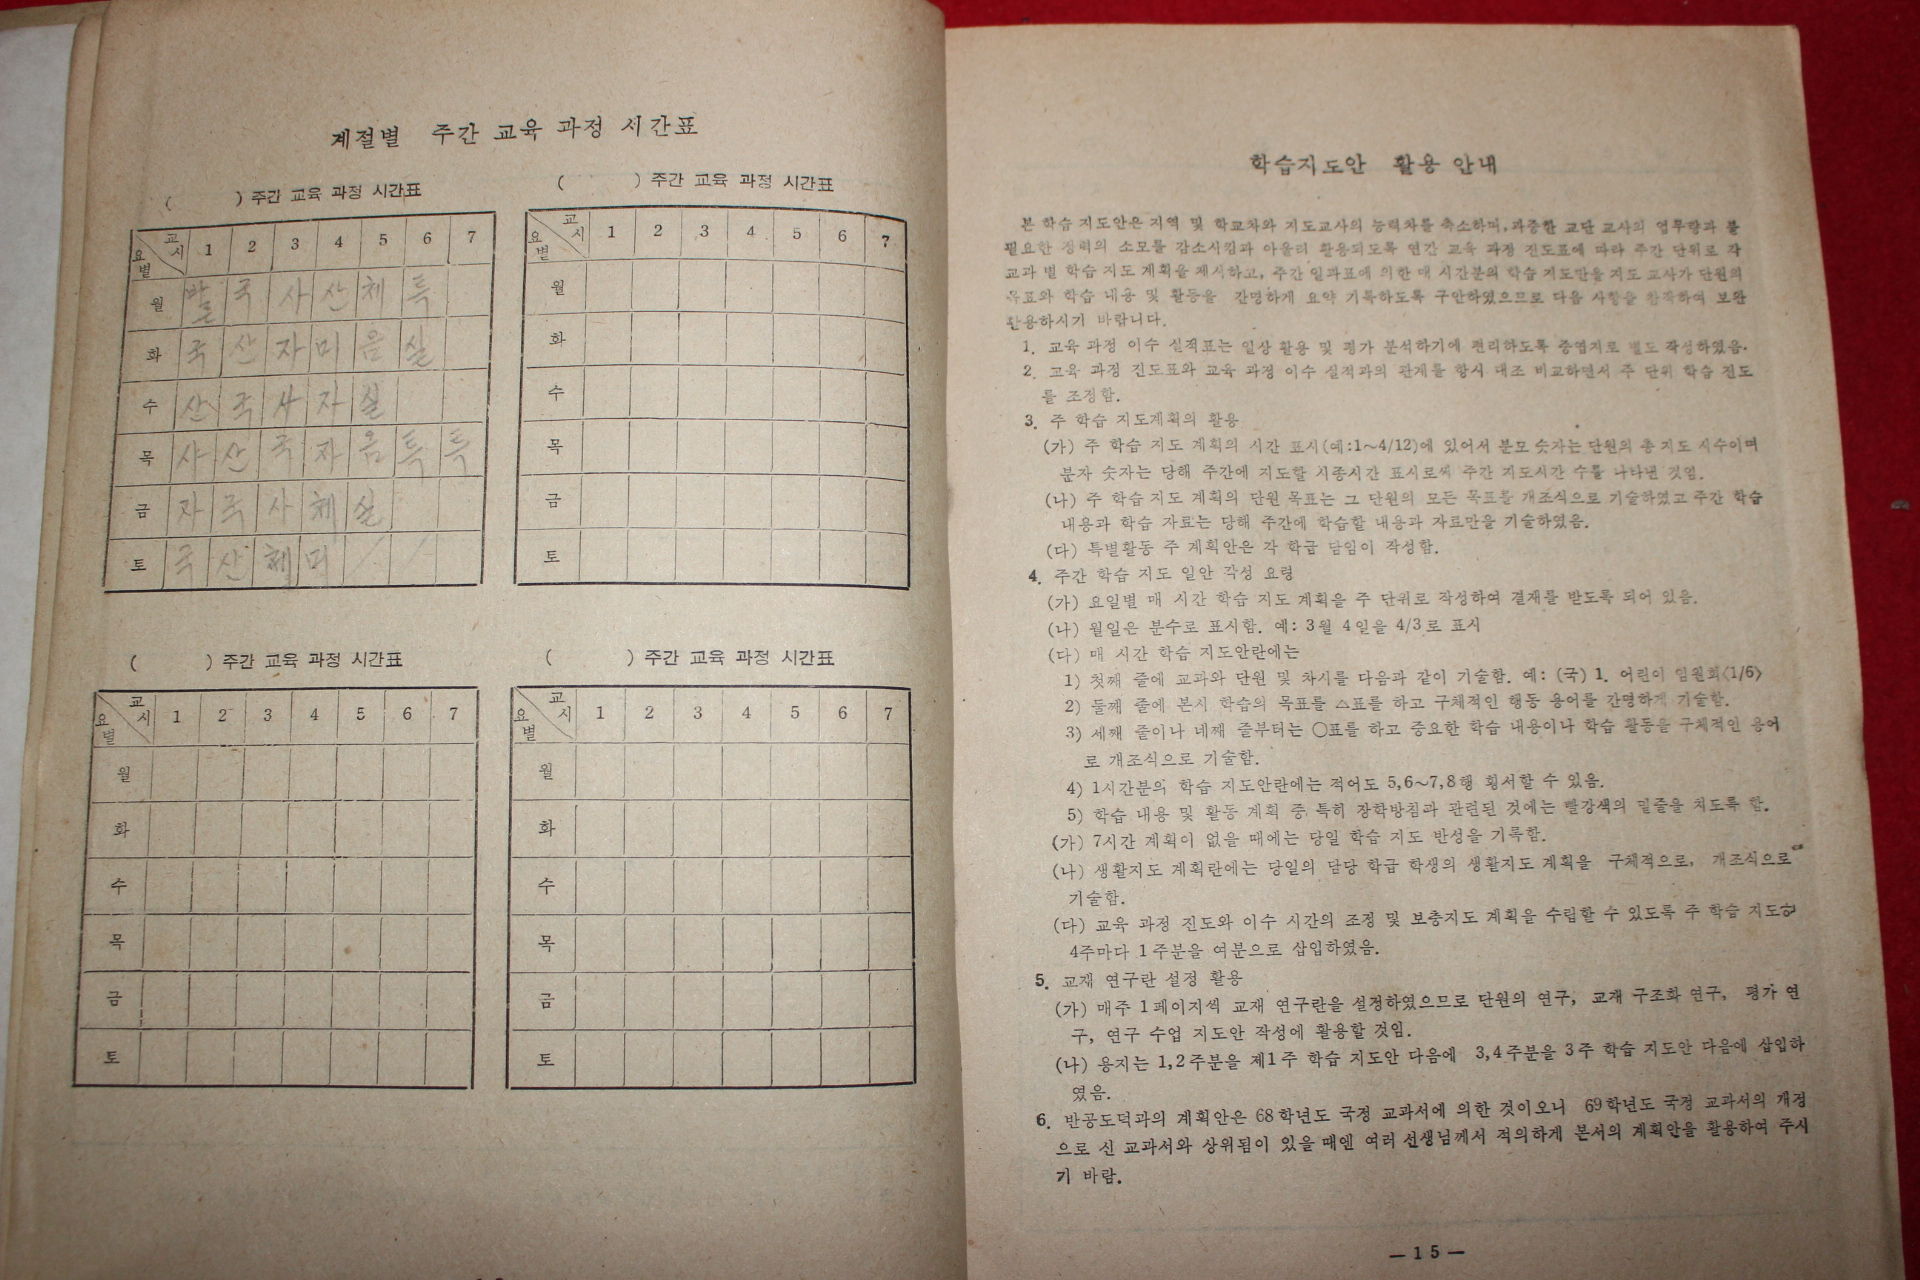 계절별 주간 교육 과정 시간표
( ) 주간 교육 과정 시간표
교시 요별 1 2 3 4 5 6 7
월 발 국 사 산 체 특
화 국 산 자 미 음 실
수 산 국 사 자 실
목 사 산 국 자 음 특 특
금 자 국 사 체 실
토 국 산 체 미
( ) 주간 교육 과정 시간표
교시 요별 1 2 3 4 5 6 7
월
화
수
목
금
토
( ) 주간 교육 과정 시간표
교시 요별 1 2 3 4 5 6 7
월
화
수
목
금
토
( ) 주간 교육 과정 시간표
교시 요별 1 2 3 4 5 6 7
월
화
수
목
금
토
학습지도안 활용 안내
본 학습 지도안은 지역 및 학교차와 지도교사의 능력차를 축소하며, 과중한 교단 교사의 업무량과 불
필요한 정력의 소모를 감소시킴과 아울러 활용되도록 연간 교육 과정 진도표에 따라 주간 단위로 각
교과 별 학습 지도 계획을 제시하고, 주간 일과표에 의한 매 시간분의 학습 지도안을 지도 교사가 단원의
목표와 학습 내용 및 활동을 간명하게 요약 기록하도록 구안하였으므로 다음 사항을 참작하여 보완
활용하시기 바랍니다.
1. 교육 과정 이수 실적표는 일상 활용 및 평가 분석하기에 편리하도록 중엽지로 별도 작성하였음.
2. 교육 과정 진도표와 교육 과정 이수 실적과의 관계를 항시 대조 비교하면서 주 단위 학습 진도
를 조정함.
3. 주 학습 지도계획의 활용
(가) 주 학습 지도 계획의 시간 표시(예:1~4/12)에 있어서 분모 숫자는 단원의 총 지도 시수이며
분자 숫자는 당해 주간에 지도할 시종시간 표시로써 주간 지도시간 수를 나타낸 것임.
(나) 주 학습 지도 계획의 단원 목표는 그 단원의 모든 목표를 개조식으로 기술하였고 주간 학습
내용과 학습 자료는 당해 주간에 학습할 내용과 자료만을 기술하였음.
(다) 특별활동 주 계획안은 각 학급 담임이 작성함.
4. 주간 학습 지도 일안 작성 요령
(가) 요일별 매 시간 학습 지도 계획을 주 단위로 작성하여 결재를 받도록 되어 있음.
(나) 월일은 분수로 표시함. 예: 3월 4일을 4/3로 표시
(다) 매 시간 학습 지도안란에는
1) 첫째 줄에 교과와 단원 및 차시를 다음과 같이 기술함. 예: (국) 1. 어린이 임원회<1/6>
2) 둘째 줄에 본시 학습의 목표를 △표를 하고 구체적인 행동 용어를 간명하게 기술함.
3) 세째 줄이나 네째 줄부터는 ○표를 하고 중요한 학습 내용이나 학습 활동을 구체적인 용어
로 개조식으로 기술함.
4) 1시간분의 학습 지도안란에는 적어도 5,6~7,8행 횡서할 수 있음.
5) 학습 내용 및 활동 계획 중 특히 장학방침과 관련된 것에는 빨강색의 밑줄을 치도록 함.
(가) 7시간 계획이 없을 때에는 당일 학습 지도 반성을 기록함.
(나) 생활지도 계획란에는 당일의 담당 학급 학생의 생활지도 계획을 구체적으로, 개조식으로
기술함.
(다) 교육 과정 진도와 이수 시간의 조정 및 보충지도 계획을 수립할 수 있도록 주 학습 지도안
4주마다 1주분을 여분으로 삽입하였음.
5. 교재 연구란 설정 활용
(가) 매주 1페이지씩 교재 연구란을 설정하였으므로 단원의 연구, 교재 구조화 연구, 평가 연
구, 연구 수업 지도안 작성에 활용할 것임.
(나) 용지는 1,2주분을 제1주 학습 지도안 다음에 3,4주분을 3주 학습 지도안 다음에 삽입하
였음.
6. 반공도덕과의 계획안은 68학년도 국정 교과서에 의한 것이오니 69학년도 국정 교과서의 개정
으로 신 교과서와 상위됨이 있을 때엔 여러 선생님께서 적의하게 본서의 계획안을 활용하여 주시
기 바람.
—15—